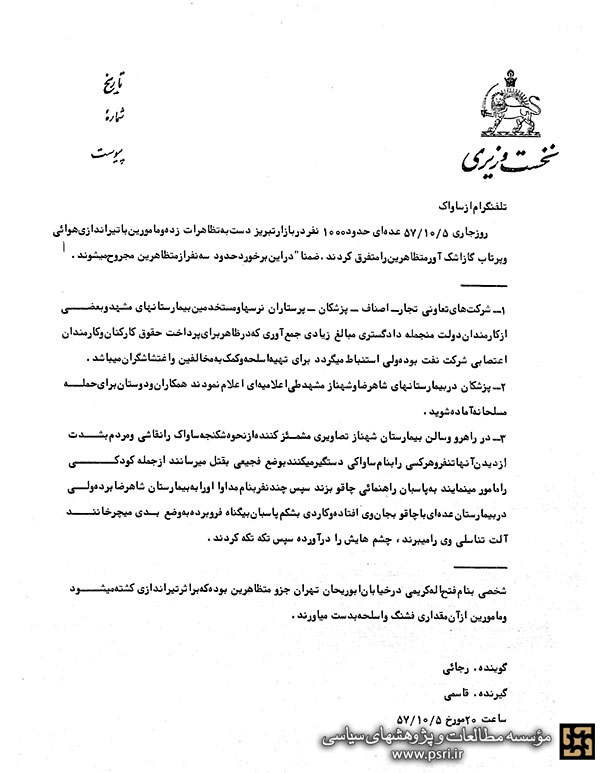 تاریخ
شمارهٔ
پیوست
نخست وزیری
تلفنگرام از ساواک
روزجاری ۵۷/۱۰/۵ عده‌ای حدود ۱۰۰۰ نفر در بازار تبریز دست به تظاهرات زده و مامورین با تیراندازی هوائی
و پرتاب گاز اشک آور متظاهرین را متفرق کردند . ضمنا" در این برخورد حدود سه نفر از متظاهرین مجروح میشوند .
۱ــ شرکت‌های تعاونی تجار ــ اصناف ــ پزشکان ــ پرستاران نرسها و مستخدمین بیمارستانهای مشهد و بعضــــی
از کارمندان دولت منجمله دادگستری مبالغ زیادی جمع آوری که در ظاهر برای پرداخت حقوق کارکنان و کارمندان
اعتصابی شرکت نفت بوده ولی استنباط میگردد برای تهیه اسلحه و کمک به مخالفین و اغتشاشگران میباشد .
۲ــ پزشکان در بیمارستانهای شاهرضا و شهناز مشهد طی اعلامیه‌ای اعلام نمودند همکاران و دوستان برای حملـــه
مسلحانه آماده شوید .
۳ــ در راهرو و سالن بیمارستان شهناز تصاویری مشمــئز کننده از نحوه شکنجه ساواک را نقاشی و مردم بشــدت
از دیدن آنها تنفر و هر کسی را بنام ساواکی دستگیر میکنند بوضع فجیعی بقتل میرسانند از جمله کودکــــــی
را مامور مینمایند به پاسبان راهنمائی چاقو بزند سپس چند نفر بنام مداوا اورا به بیمارستان شاهرضا برده ولــی
در بیمارستان عده‌ای با چاقو بجان وی افتاده و کاردی بشکم پاسبان بیگناه فرو برده به وضع بدی میچرخاننــــد
آلت تناسلی وی را میبرند ، چشم هایش را درآورده سپس تکه تکه کردند .
شخصی بنام فتح اله کریمی در خیابان ابوریحان تهران جزو متظاهرین بوده که بر اثر تیراندازی کشته میشـــــود
و مامورین از آن مقداری فشنگ و اسلحه بدست میاورند .
گوینده . رجائی
گیرنده . قاسمی
ساعت ۲۰ مورخ ۵۷/۱۰/۵
مؤسسه مطالعات و پژوهشهای سیاسی
www.psri.ir